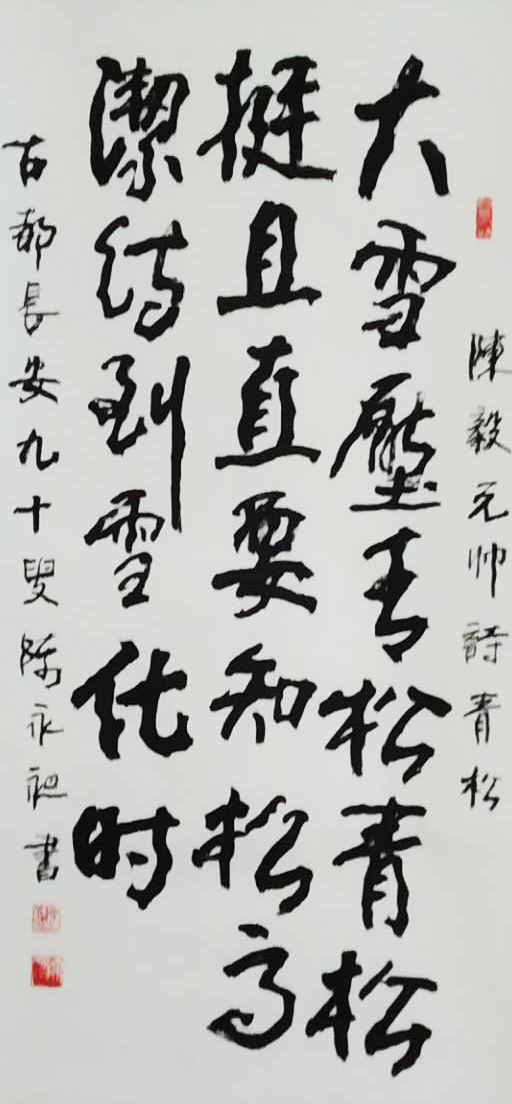 陳毅元帅詩青松
大雪壓青松青松
挺且直要知松高
潔待到雪化时
古都長安九十叟陈永禩書